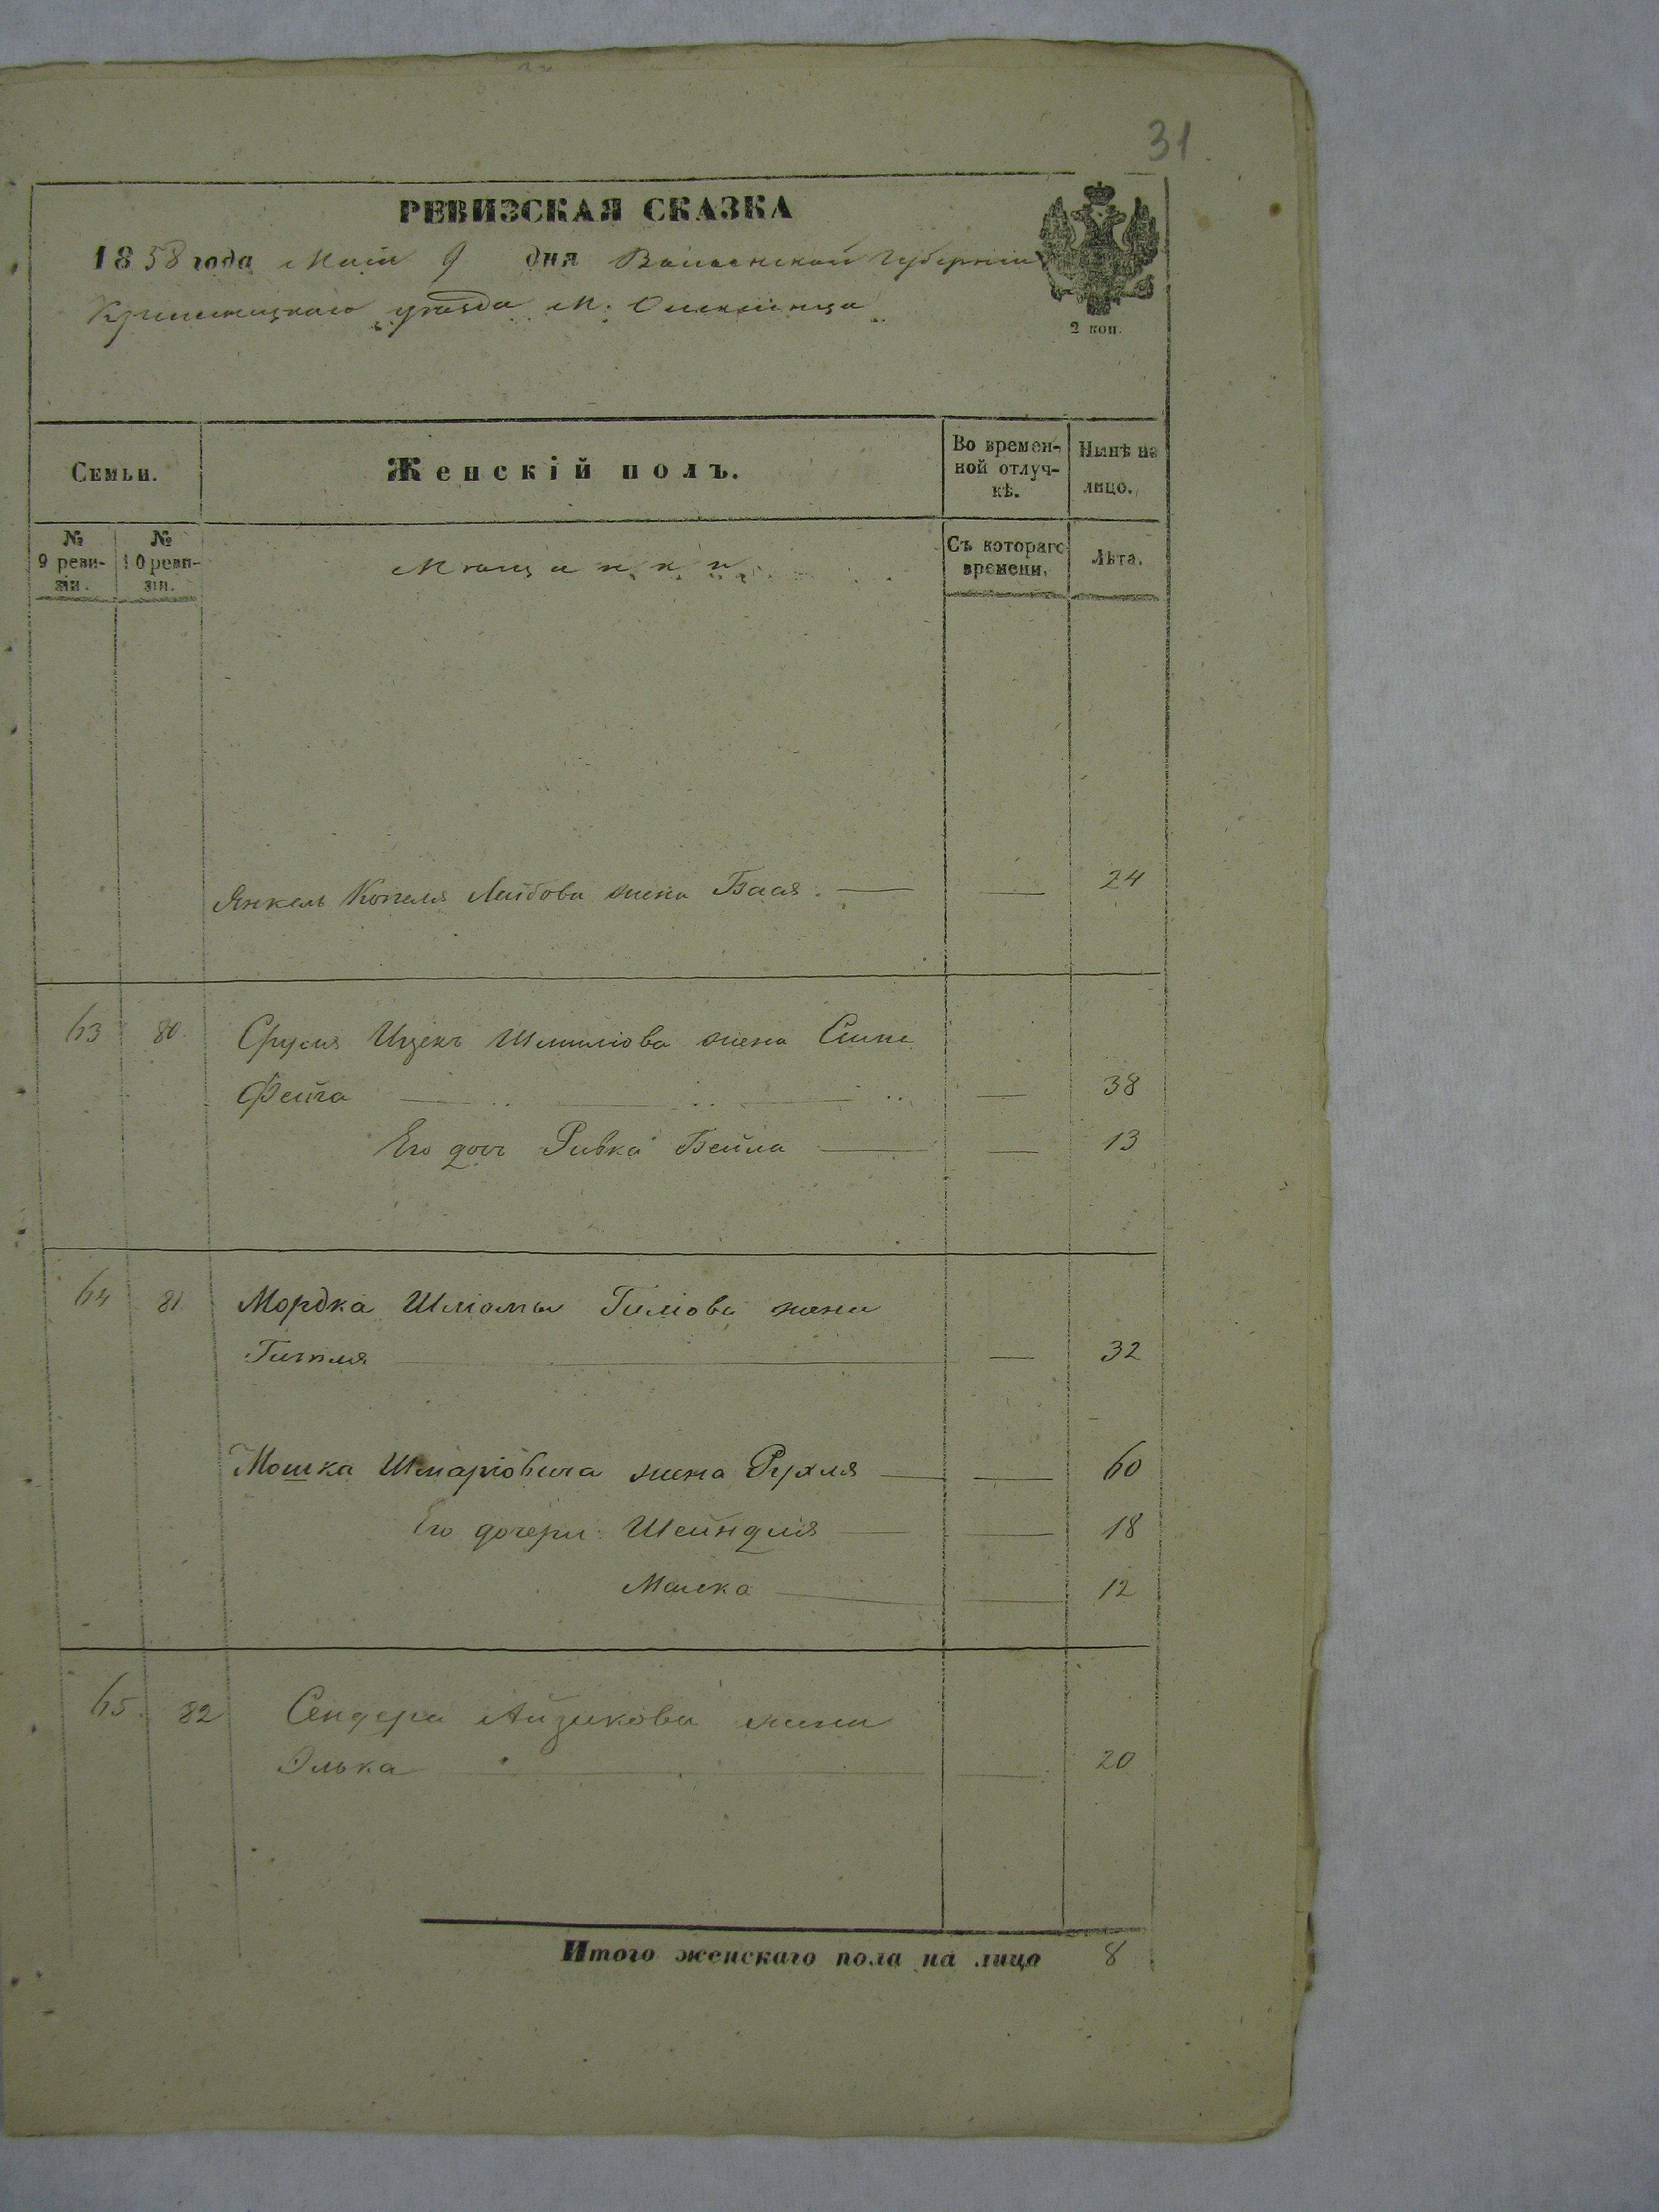 31
РЕВИЗСКАЯ СКАЗКА
1858 года Маія 9 дня Волынской Губерніи
Кременецкаго уѣзда М. Олексинца
2 коп.
Семьи.
Женскій полъ.
Во времен-
ной отлуч-
кѣ.
Нынѣ на
лицо.
№
9 реви-
зіи.
№
10 реви-
зіи.
Мѣщанки
Съ котораго
времени.
Лѣта.
Янкель Копеля Лейбова жена Бася — — 24
63 80. Сруля Ицекъ Шмилiова жена
Фейга — — 38
Его дочь Ривка Бейла — — 13
64 81 Мордка Шлiомы жена
Гитля — — 32
Мошка Шмарiовича жена Рухля — — 60
Его дочери: Шейндля — — 18
Малка — — 12
65 82 Сендера Айзикова жена
Элька — — 20
Итого женскаго пола на лицо 8